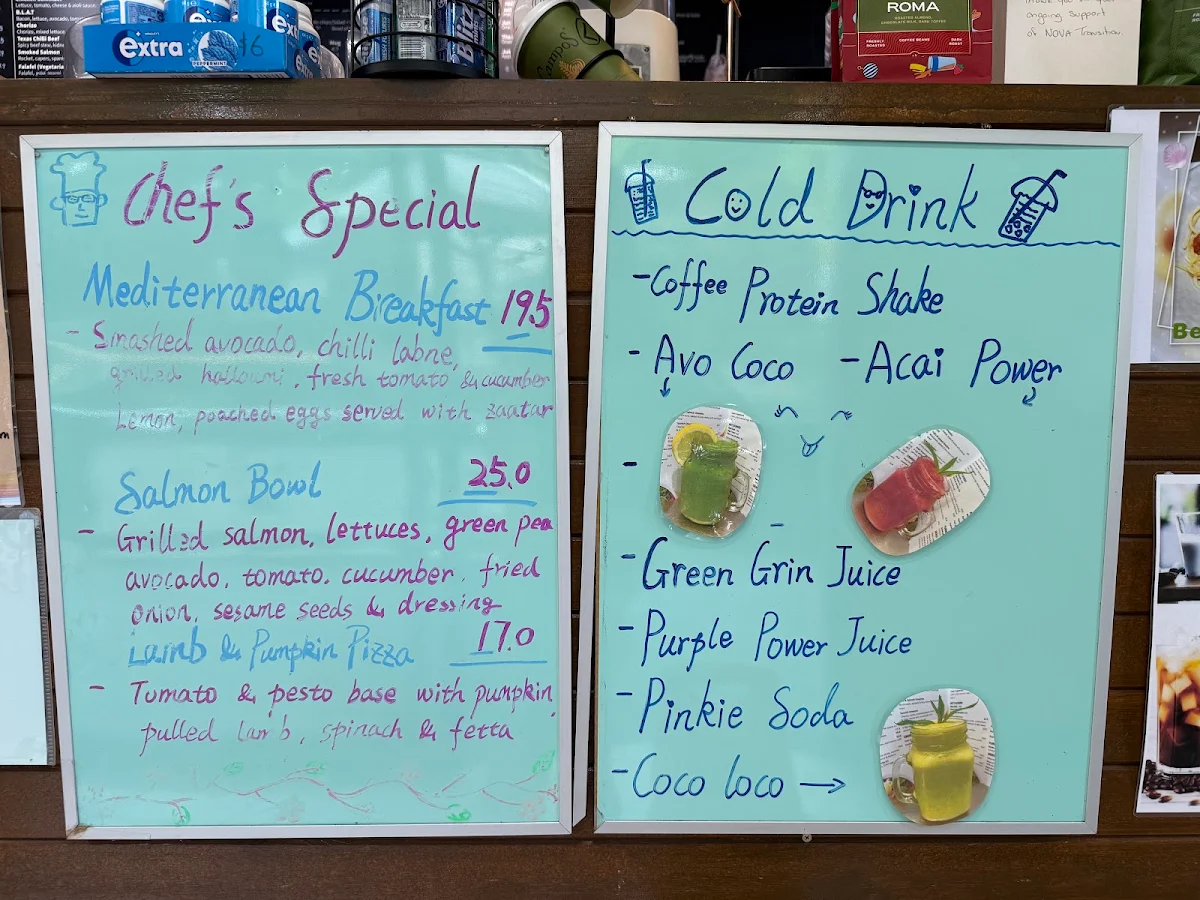 B.L.A.T
Chorizo
Texas Chilli Beef
Smoked Salmon
Falafel (Vegetaria
extra
PEPPERMINT
$6
Blitz
ROMA
ROASTED ALMOND,
CHOCOLATE MILK, DARK TOFFEE
FRESHLY ROASTED
COFFEE BEANS
DARK ROAST
ongoing support
of NOVA Transition.
Chef's Special
Mediterranean Breakfast 19.5
- Smashed avocado, chilli labne,
grilled halloumi, fresh tomato & cucumber
Lemon, poached eggs served with zaatar
Salmon Bowl 25.0
- Grilled salmon, lettuces, green pea
avocado, tomato. cucumber, fried
onion, sesame seeds & dressing
Lamb & Pumpkin Pizza 17.0
- Tomato & pesto base with pumpkin,
pulled lamb, spinach & fetta
Cold Drink
- Coffee Protein Shake
- Avo Coco - Acai Power
-
- Green Grin Juice
- Purple Power Juice
- Pinkie Soda
- Coco loco →
Be